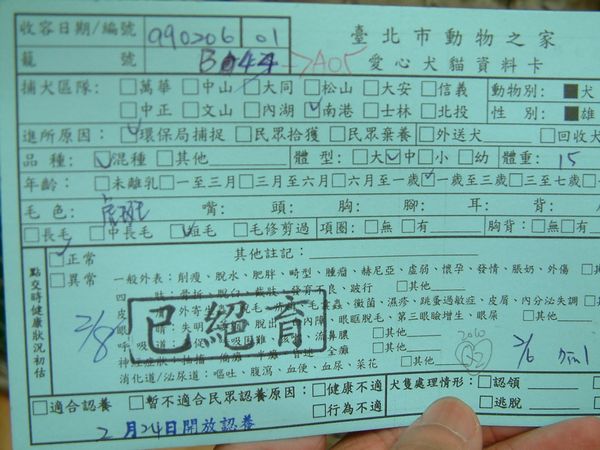 收容日期/編號 990206 01 臺北市動物之家
籠號 B044→A05 愛心犬貓資料卡
捕犬區隊: □萬華 □中山 □大同 □松山 □大安 □信義 動物別: ■犬
□中正 □文山 □內湖 ☑南港 □士林 □北投 性別: ■雄
進所原因: ☑環保局捕捉 □民眾拾獲 □民眾棄養 □外送犬 □回收犬
品種: ☑混種 □其他 體型: □大 ☑中 □小 □幼 體重: 15
年齡: □未離乳 □一至三月 □三月至六月 □六月至一歲 ☑一歲至三歲 □三至七歲
毛色: 虎斑 嘴: 頭: 胸: 腳: 耳: 背:
□長毛 □中長毛 ☑短毛 □毛修剪過 項圈: □無 □有 胸背: □無
點交時健康狀況初估
☑正常 其他註記:
□異常 一般外表: 削瘦、脫水、肥胖、畸型、腫瘤、赫尼亞、虛弱、懷孕、發情、脹奶、外傷
四肢: 骨折、脫臼、截肢、發育不良、跛行 □其他
黴菌、濕疹、跳蚤過敏症、皮屑、內分泌失調
眼睛: 失明、脫出、白內障、眼眶脫毛、第三眼瞼增生、眼屎
呼吸道: 流鼻膿 □其他
神經症狀: 抽搐、偏癱、半癱、全癱 □其他
消化道/泌尿道: 嘔吐、腹瀉、血便、血尿、菜花 □其他
已絕育
2/8
2010
2/6
□適合認養 □暫不適合民眾認養原因: □健康不適 犬隻處理情形: □認領
□行為不適 □逃脫
2月24日開放認養